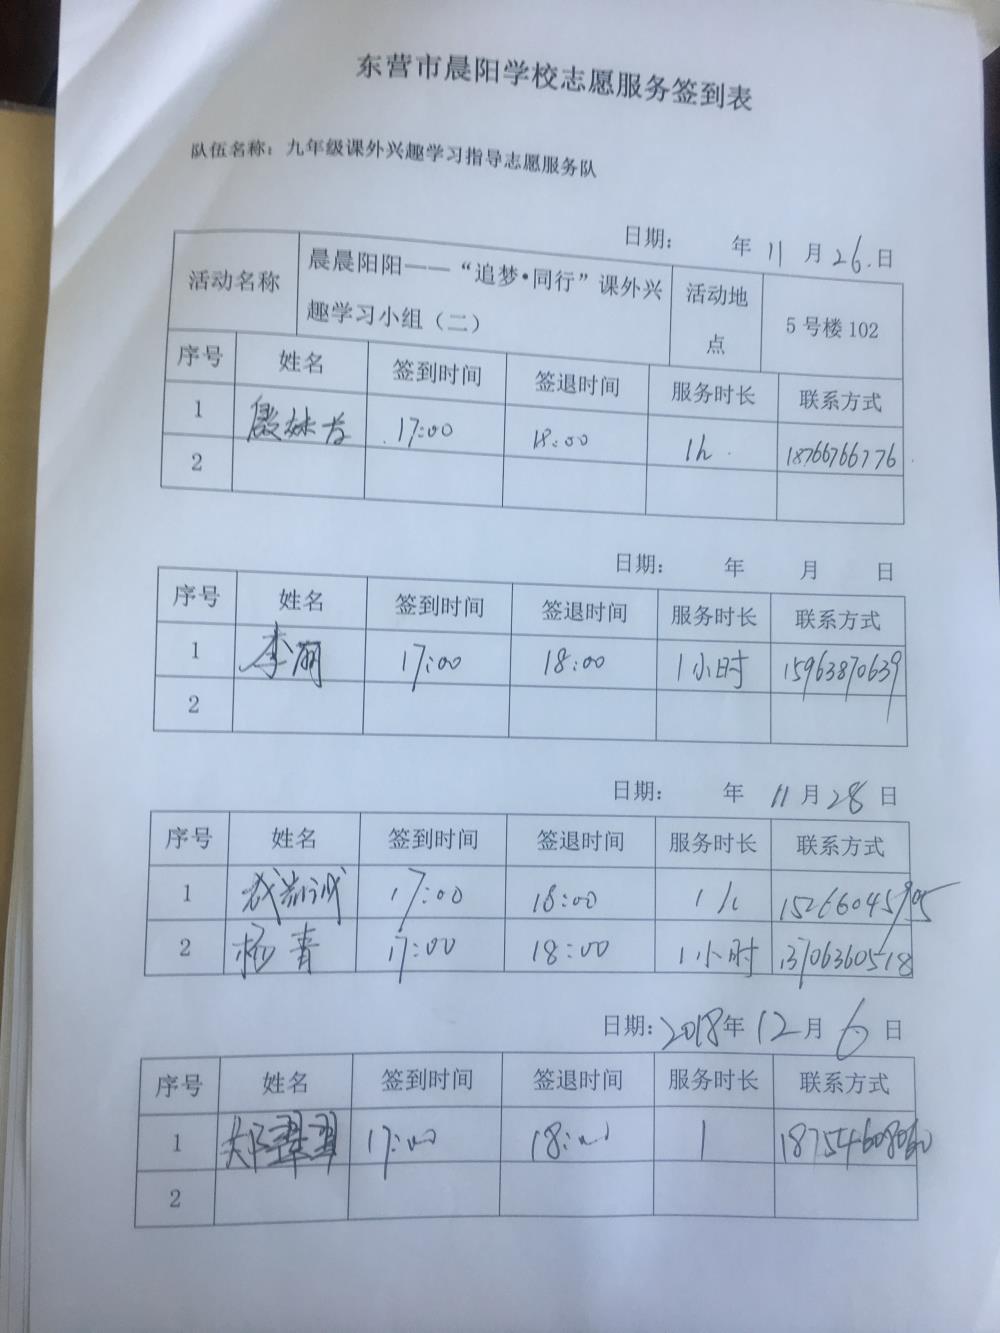 东营市晨阳学校志愿服务签到表
队伍名称：九年级课外兴趣学习指导志愿服务队
日期： 年 11 月 26.日
活动名称 晨晨阳阳——“追梦•同行”课外兴趣学习小组（二） 活动地点 5 号楼 102
序号 姓名 签到时间 签退时间 服务时长 联系方式
1 17:00 18:00 1h 18766766776
2
日期： 年 月 日
序号 姓名 签到时间 签退时间 服务时长 联系方式
1 李丽 17:00 18:00 1小时 15963870639
2
日期： 年 11 月 28 日
序号 姓名 签到时间 签退时间 服务时长 联系方式
1 17:00 18:00 1h
2 杨青 17:00 18:00 1小时 13706360518
日期：2018年 12 月 6 日
序号 姓名 签到时间 签退时间 服务时长 联系方式
1 郑翠翠 17:00 18:00 1 18754608060
2